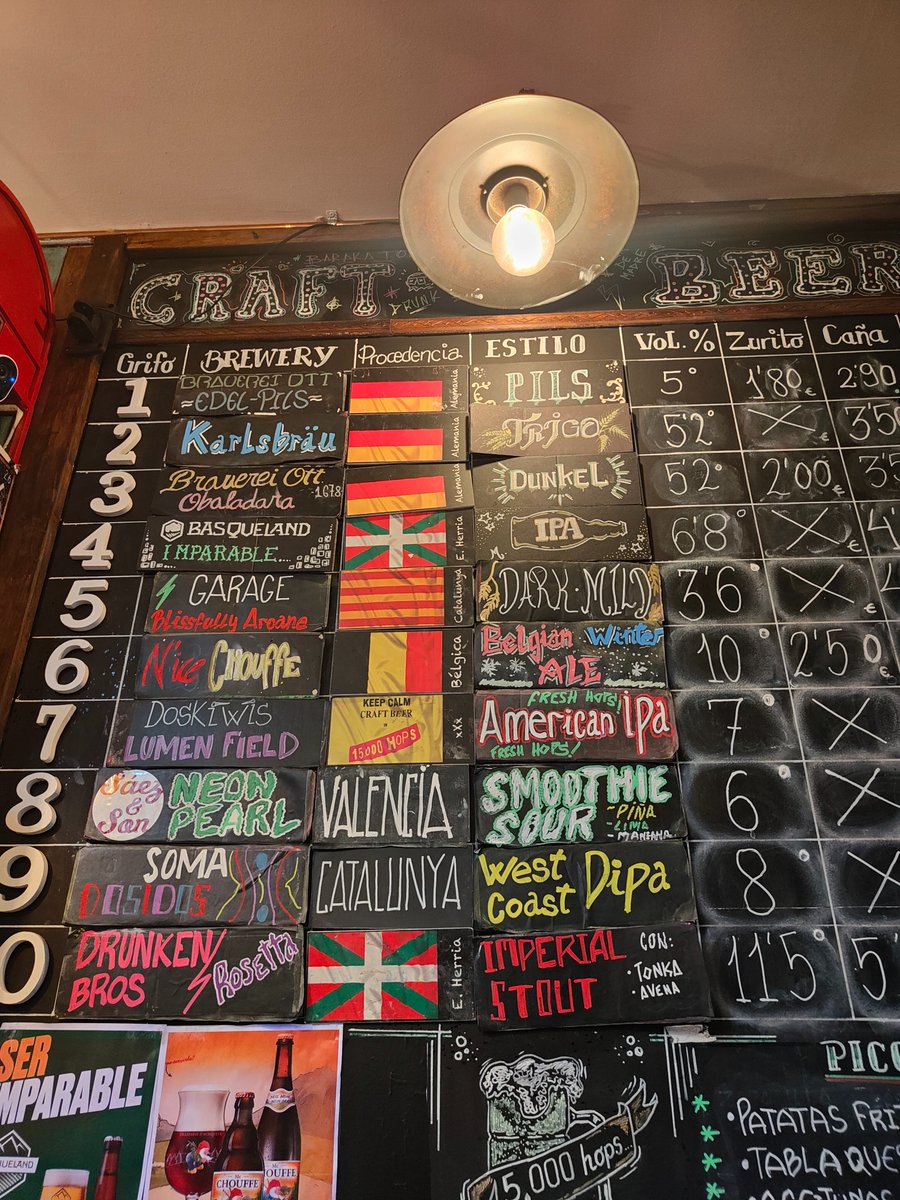 CRAFT BEER
Grifo BREWERY Procedencia ESTILO VOL.% Zurito Caña
1 BRAUEREI OTT Alemania PILS 5° 1'80 € 2'90
≈EDEL-PILS≈
2 Karlsbräu Alemania TRIGO 5'2° X € 3'50
3 Brauerei Ott Alemania DUNKEL 5'2° 2'00 €
Obaladara 1678
4 BASQUELAND E. Herria IPA 6'8° X €
IMPARABLE...
5 GARAGE Catalunya DARK·MILD 3'6° X €
Blissfully Aroane
6 N'ice CHOUFFE Bélgica Belgian Winter ALE 10° 2'50 €
7 DOSKIWIS KEEP CALM xXx FRESH HOPS! 7° X
LUMEN FIELD CRAFT BEER American IPa
15.000 HOPS FRESH HOPS!
8 Sáez & Son NEON PEARL VALENCIA SMOOTHIE SOUR 6° X
-PIÑA
-LIMA
9 SOMA CATALUNYA West Coast Dipa 8° X
DOSIDOS
0 DRUNKEN BROS Rosetta E. Herria IMPERIAL STOUT CON: 11'5° 5'
·TONKA
·AVENA
SER
MPARABLE
QUELAND
Mc CHOUFFE
OUFFE
15,000 hops.
PICO
·PATATAS FRIT
·TABLA QUE